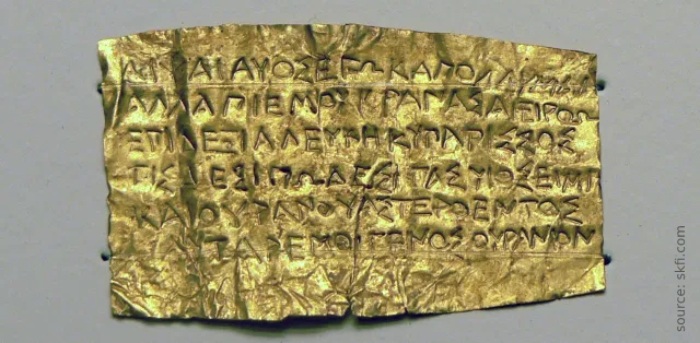 ΔΙΨΑΙΑΥΟΣΕΓΩΚΑΠΟΛΛΥΜΑΙ
ΑΛΛΑΠΙΕΜΟΥΚΡΑΝΑΣΑΙΕΙΡΟΩ
ΕΠΙΔΕΞΙΑΛΕΥΚΗΚΥΠΑΡΙΣΣΟΣ
ΤΙΣΔΕΣΙΠΩΔΕΣΙΓΑΣΥΙΟΣΕΙΜΙ
ΚΑΙΟΥΡΑΝΟΥΑΣΤΕΡΟΕΝΤΟΣ
ΑΥΤΑΡΕΜΟΙΓΕΝΟΣΟΥΡΑΝΙΟΝ
source: skfi.com